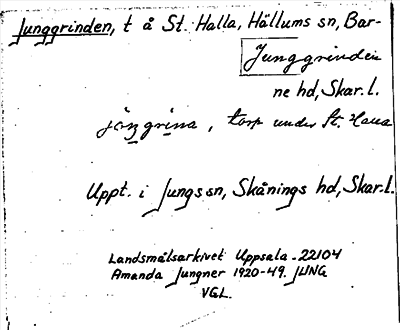 Junggrinden, t å St. Halla, Hällums sn, Bar-
Junggrinden
ne hd, Skar.l.
jöŋgrina, torp under St. Halla
Uppt. i Jungs sn, Skånings hd, Skar.l.
Landsmålsarkivet Uppsala - 22104
Amanda Jungner 1920-49. JUNG
VGL.